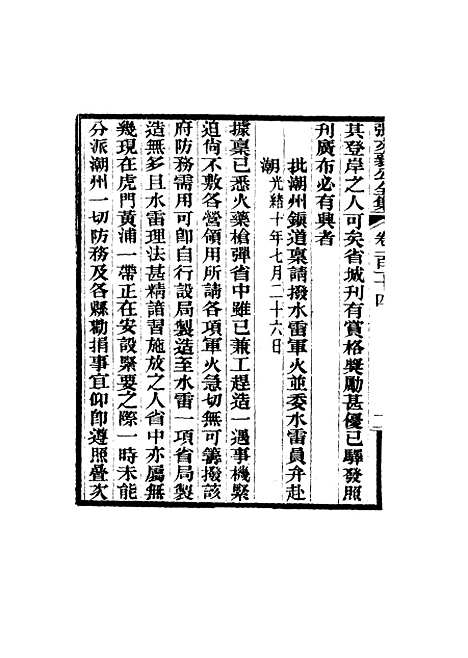 張文襄公全集 卷一百十四
其登岸之人可矣省城刊有賞格獎勵甚優已驛發照
刊廣布必有興者
批潮州鎮道稟請撥水雷軍火並委水雷員弁赴
潮光緒十年七月二十六日
據稟已悉火藥槍彈省中雖已兼工趕造一遇事機緊
迫尚不敷各營領用所請各項軍火急切無可籌撥該
府防務需用可卽自行設局製造至水雷一項省局製
造無多且水雷理法甚精諳習施放之人省中亦屬無
幾現在虎門黃浦一帶正在安設緊要之際一時未能
分派潮州一切防務及各縣勸捐事宜仰卽遵照疊次